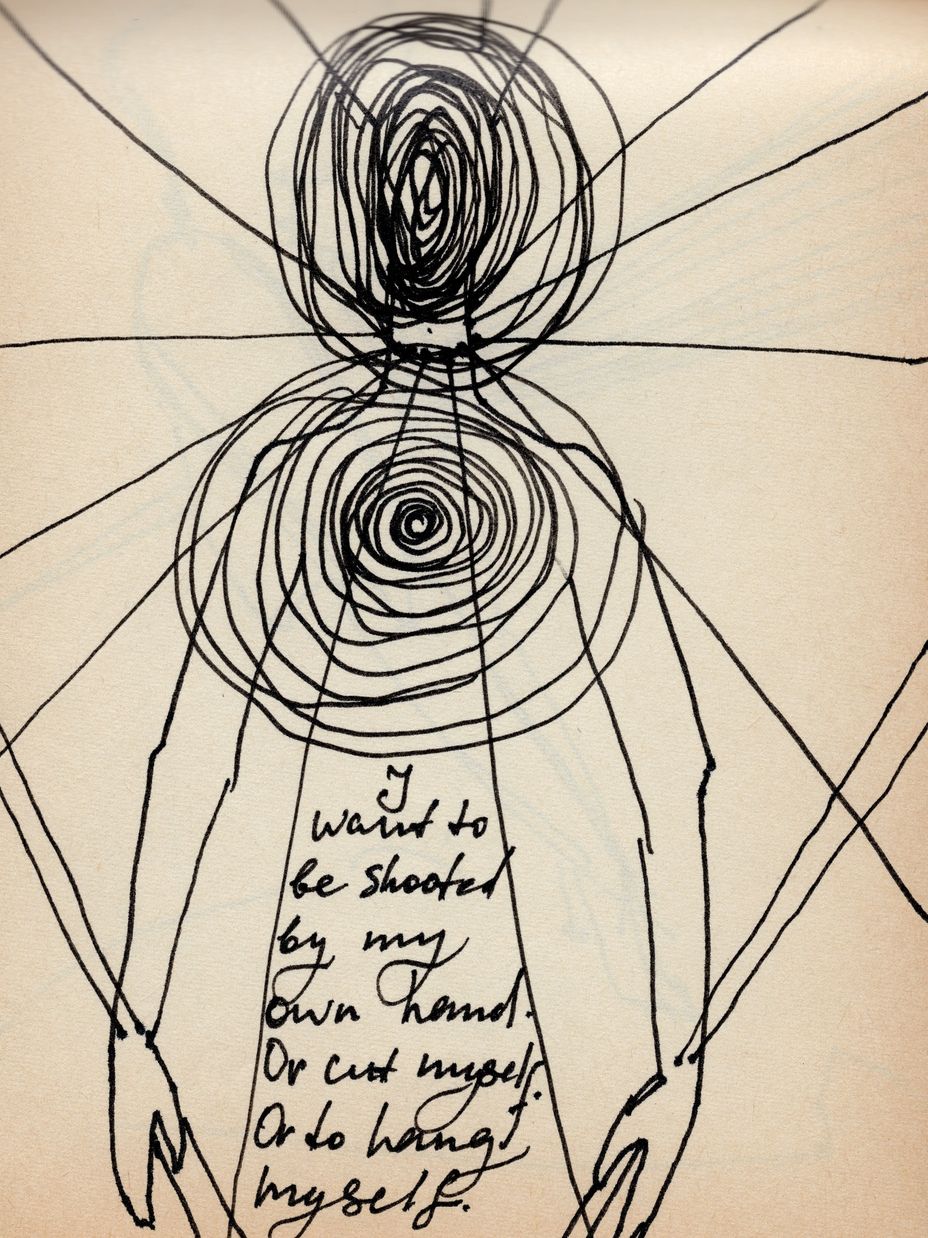 I
want to
be shooted
by my
own hand.
Or cut myself.
Or to hang
myself.